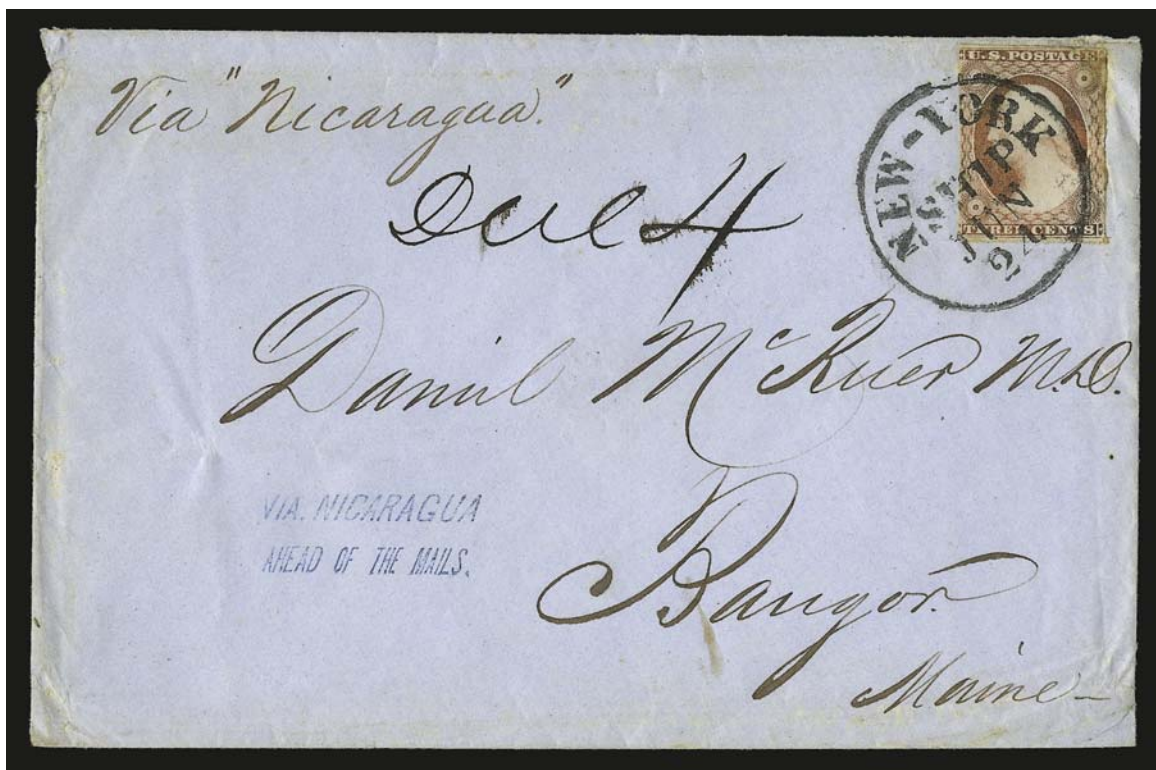 Via "Nicaragua."
U.S. POSTAGE
THREE CENTS
NEW-YORK
SHIP
JUN
24
Due 4
Daniel McRuer M.D.
VIA. NICARAGUA
AHEAD OF THE MAILS.
Bangor.
Maine